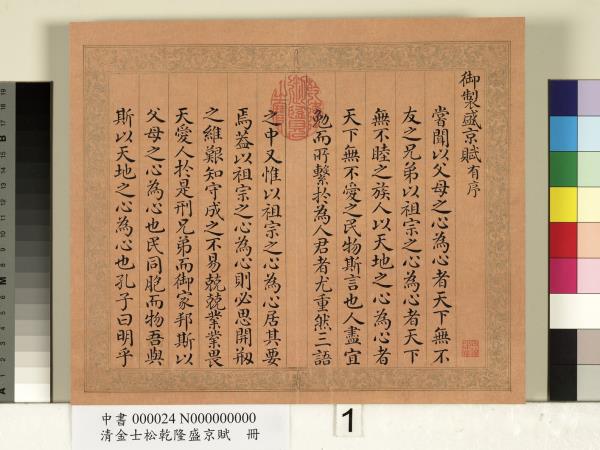 御製盛京賦有序
嘗聞以父母之心為心者天下無不
友之兄弟以祖宗之心為心者天下
無不睦之族人以天地之心為心者
天下無不愛之民物斯言也人盡宜
勉而所繫於為人君者尤重然三語
之中又惟以祖宗之心為心居其要
焉蓋以祖宗之心為心則必思開剏
之維艱知守成之不易兢兢業業畏
天愛人於是刑兄弟而御家邦斯以
父母之心為心也民同胞而物吾與
斯以天地之心為心也孔子曰明乎
中書 000024 N000000000
清金士松乾隆盛京賦 冊
1